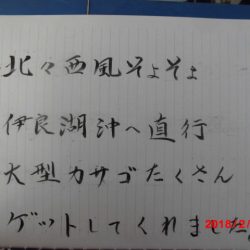 北々西風そよそよ
伊良湖沖へ直行
大型カサゴたくさん
ゲットしてくれました